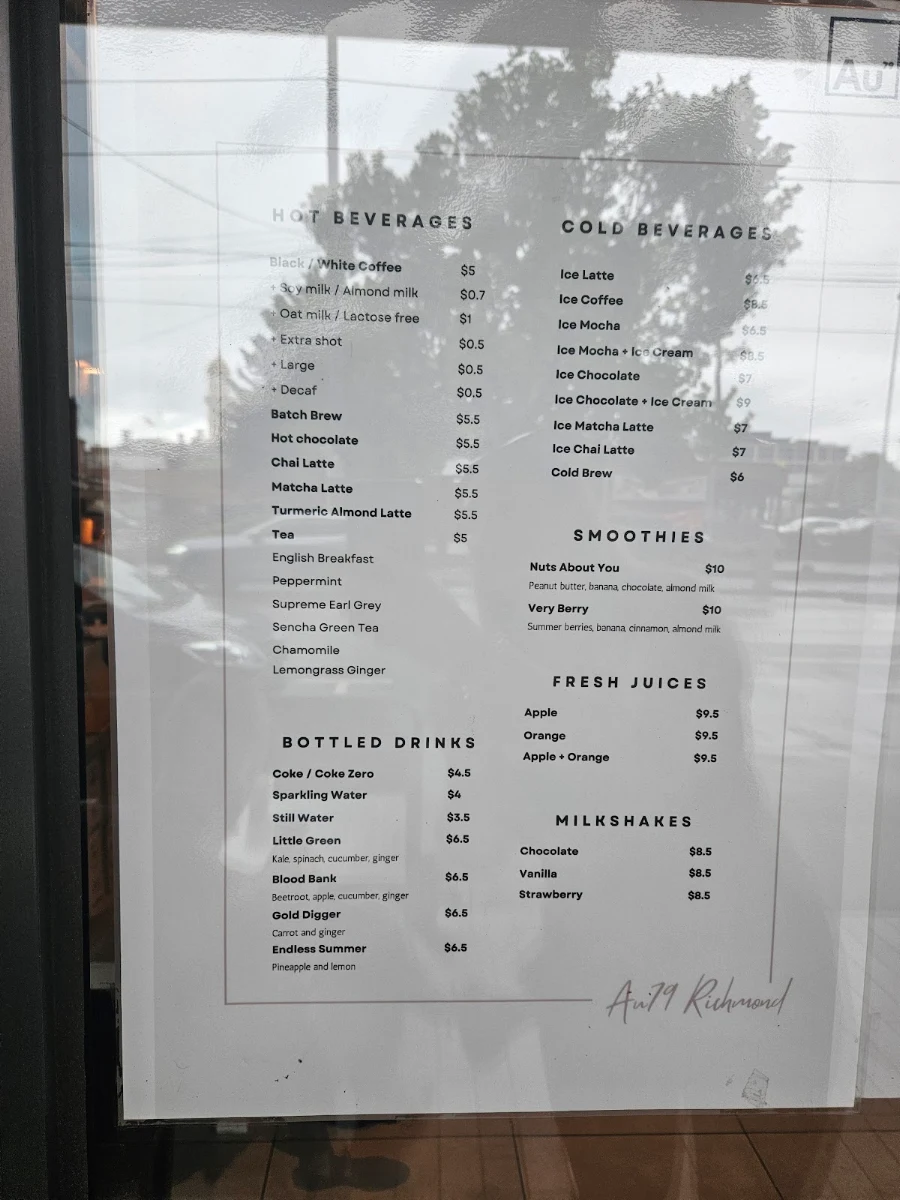 Au79
HOT BEVERAGES
Black / White Coffee $5
+ Soy milk / Almond milk $0.7
+ Oat milk / Lactose free $1
+ Extra shot $0.5
+ Large $0.5
+ Decaf $0.5
Batch Brew $5.5
Hot chocolate $5.5
Chai Latte $5.5
Matcha Latte $5.5
Turmeric Almond Latte $5.5
Tea $5
English Breakfast
Peppermint
Supreme Earl Grey
Sencha Green Tea
Chamomile
Lemongrass Ginger
BOTTLED DRINKS
Coke / Coke Zero $4.5
Sparkling Water $4
Still Water $3.5
Little Green $6.5
Kale, spinach, cucumber, ginger
Blood Bank $6.5
Beetroot, apple, cucumber, ginger
Gold Digger $6.5
Carrot and ginger
Endless Summer $6.5
Pineapple and lemon
COLD BEVERAGES
Ice Latte $6.5
Ice Coffee $8.5
Ice Mocha $6.5
Ice Mocha + Ice Cream $8.5
Ice Chocolate $7
Ice Chocolate + Ice Cream $9
Ice Matcha Latte $7
Ice Chai Latte $7
Cold Brew $6
SMOOTHIES
Nuts About You $10
Peanut butter, banana, chocolate, almond milk
Very Berry $10
Summer berries, banana, cinnamon, almond milk
FRESH JUICES
Apple $9.5
Orange $9.5
Apple + Orange $9.5
MILKSHAKES
Chocolate $8.5
Vanilla $8.5
Strawberry $8.5
Au79 Richmond